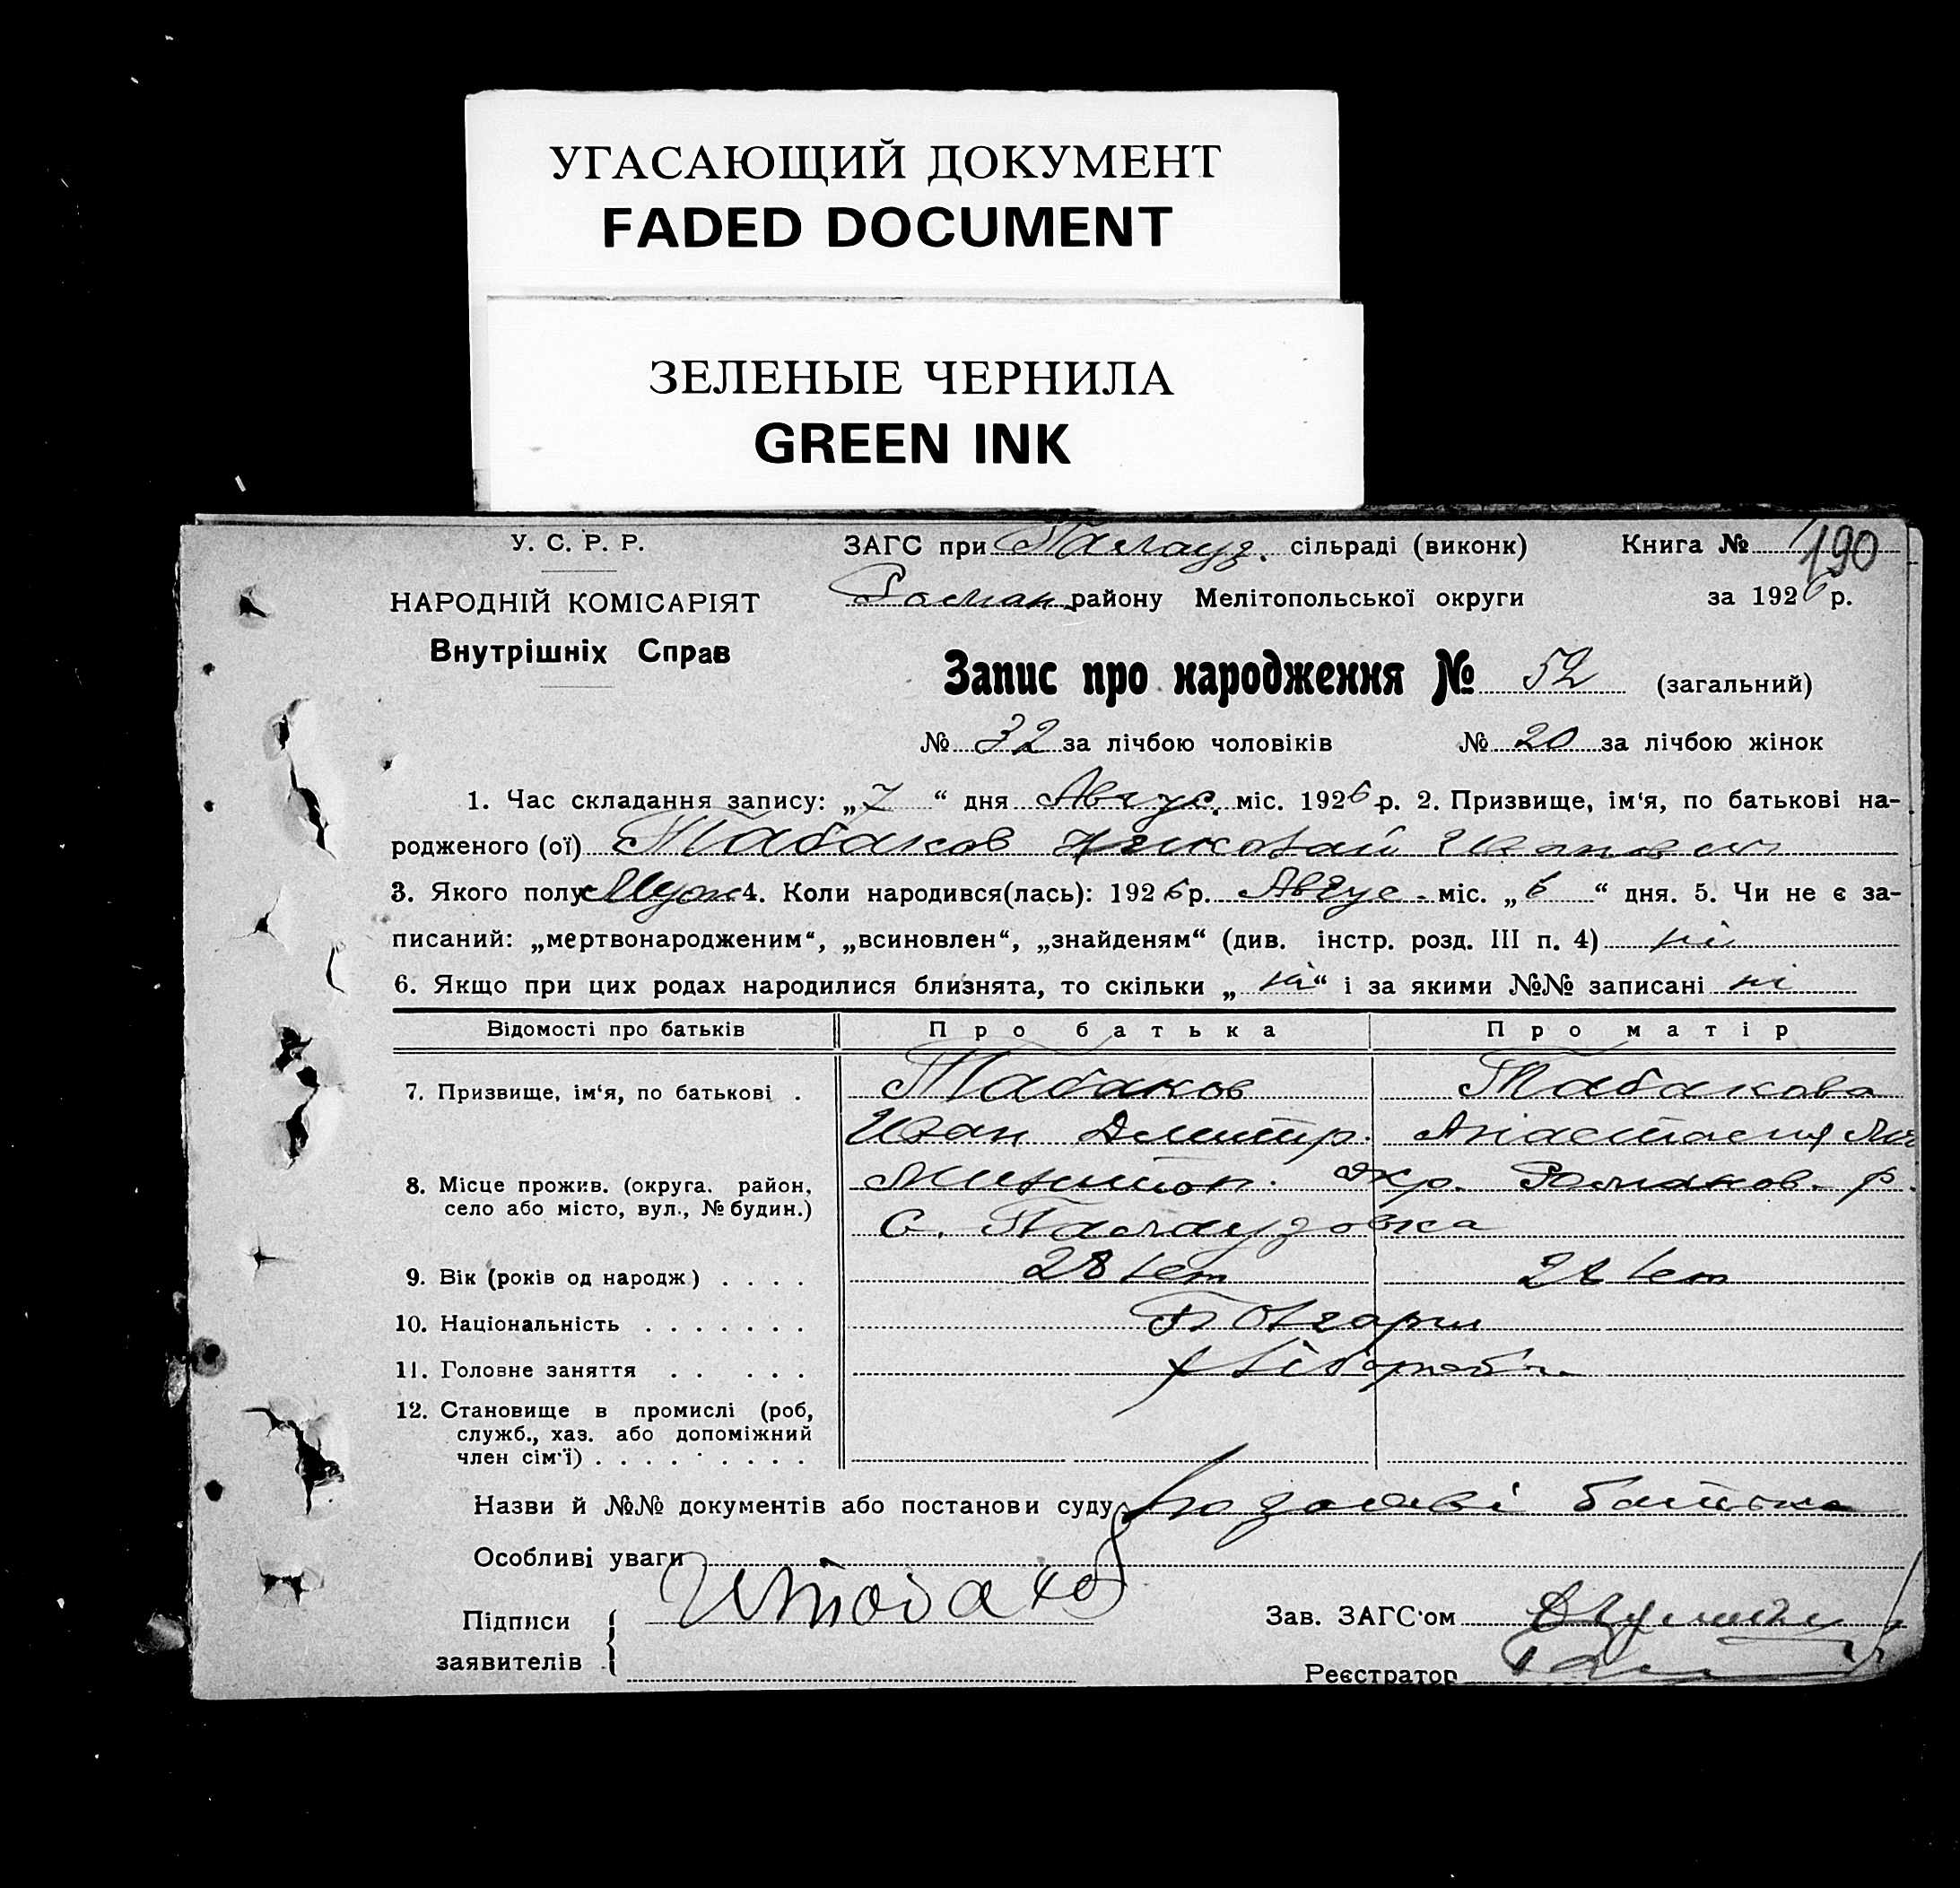 УГАСАЮЩИЙ ДОКУМЕНТ
FADED DOCUMENT
ЗЕЛЕНЫЕ ЧЕРНИЛА
GREEN INK
У. С. Р. Р. ЗАГС при Палауз. сільраді (виконк) Книга № 190
НАРОДНІЙ КОМІСАРІЯТ Роман. району Мелітопольської округи за 1926 р.
Внутрішніх Справ
Запис про народження № 52 (загальний)
№ 32 за лічбою чоловіків № 20 за лічбою жінок
1. Час складання запису: „7“ дня Авгус. міс. 1926 р. 2. Призвище, ім'я, по батькові на-
родженого (ої) Табаков Николай Иванович
3. Якого полу Муж 4. Коли народився(лась): 1926 р. Авгус. міс. „6“ дня. 5. Чи не є за-
писаний: „мертвонародженим“, „всиновлен“, „знайденям“ (див. інстр. розд. III п. 4) ні
6. Якщо при цих родах народилися близнята, то скільки „ні“ і за якими №№ записані ні
Відомості про батьків Про батька Про матір
7. Призвище, ім'я, по батькові . Табаков Табакова
Иван Дмитр. Анастасия
8. Місце прожив. (округа. район, Мелитоп. Окр. Романов. р.
село або місто, вул., № будин.) С. Палаузовка
9. Вік (років од народж) . . . . 28 лет 28 лет
10. Національність . . . . . . . Болгари
11. Головне заняття . . . . . Хліборобы
12. Становище в промислі (роб,
служб., хаз. або допоміжний
член сім'ї) . . . . . . . . .
Назви й №№ документів або постанови суду По заяві батька
Особливі уваги
Підписи Зав. ЗАГС'ом
заявителів
Реєстратор